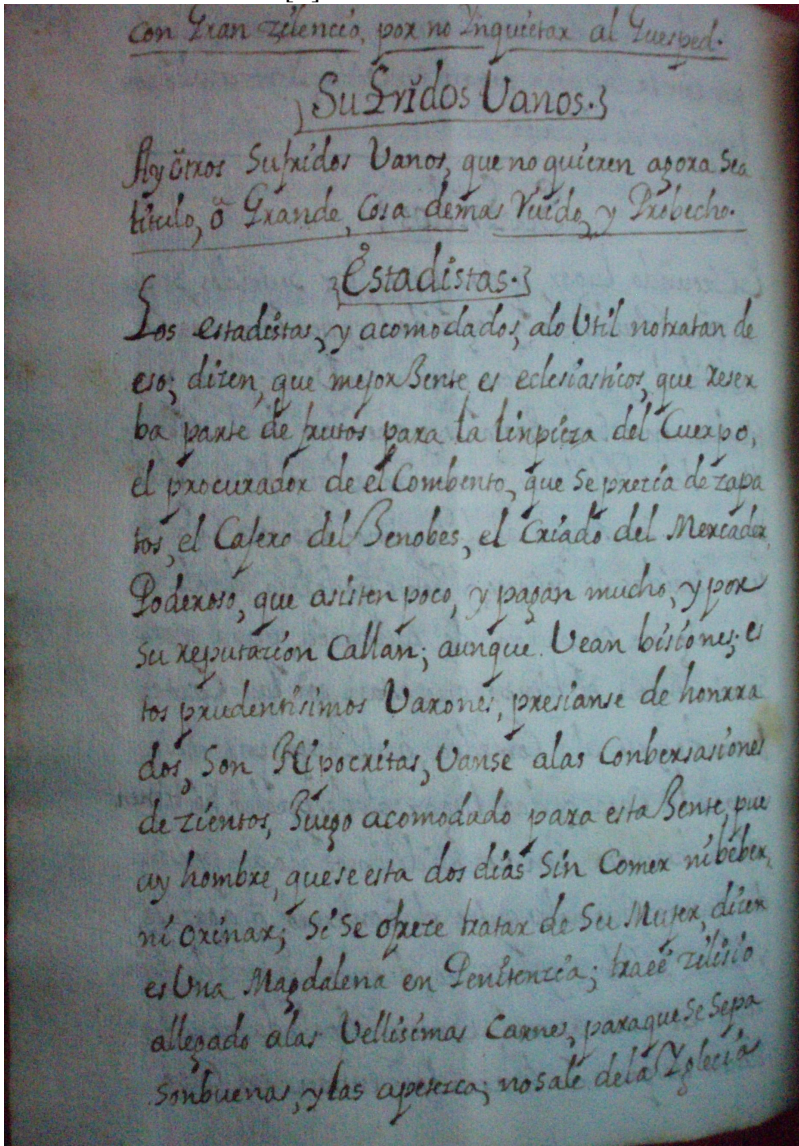 con Gran zilencio, por no Inquietar al Guesped.
Sufridos Vanos.
Ay ôtros Sufridos Vanos, que no quieren agora Sea
titulo, ô Grande, Cosa demas Ruido, y Probecho.
Estadistas.
Los estadistas, y acomodados, alo Util notratan de
eso; dizen, que mejor Jente es eclesiasticos, que reser
ba parte de frutos para la linpieza del Cuerpo,
el procurador de el Combento, que Se prezia de zapa
tos, el Casero del Jenobes, el Criado del Mercader
Poderoso, que asisten poco, y pagan mucho, y por
Su reputazion Callan; aunque Vean bisiones; es
tos prudentisimos Varones, presianse de honrra
dos, Son Hipocritas, Vanse alas Conbersasiones
de zientos, Juego acomodado para esta Jente, pue
ay hombre, quese esta dos dias Sin Comer ni beber,
ni Orinar; Si Se ofrece tratar de Su Mujer, dizen
es Una Magdalena en Penitenzia; traee zilisio
allegado alas Vellisimas Carnes, paraque Se Sepa
Sonbuenas, y las apetezca; nosale dela Yglecia